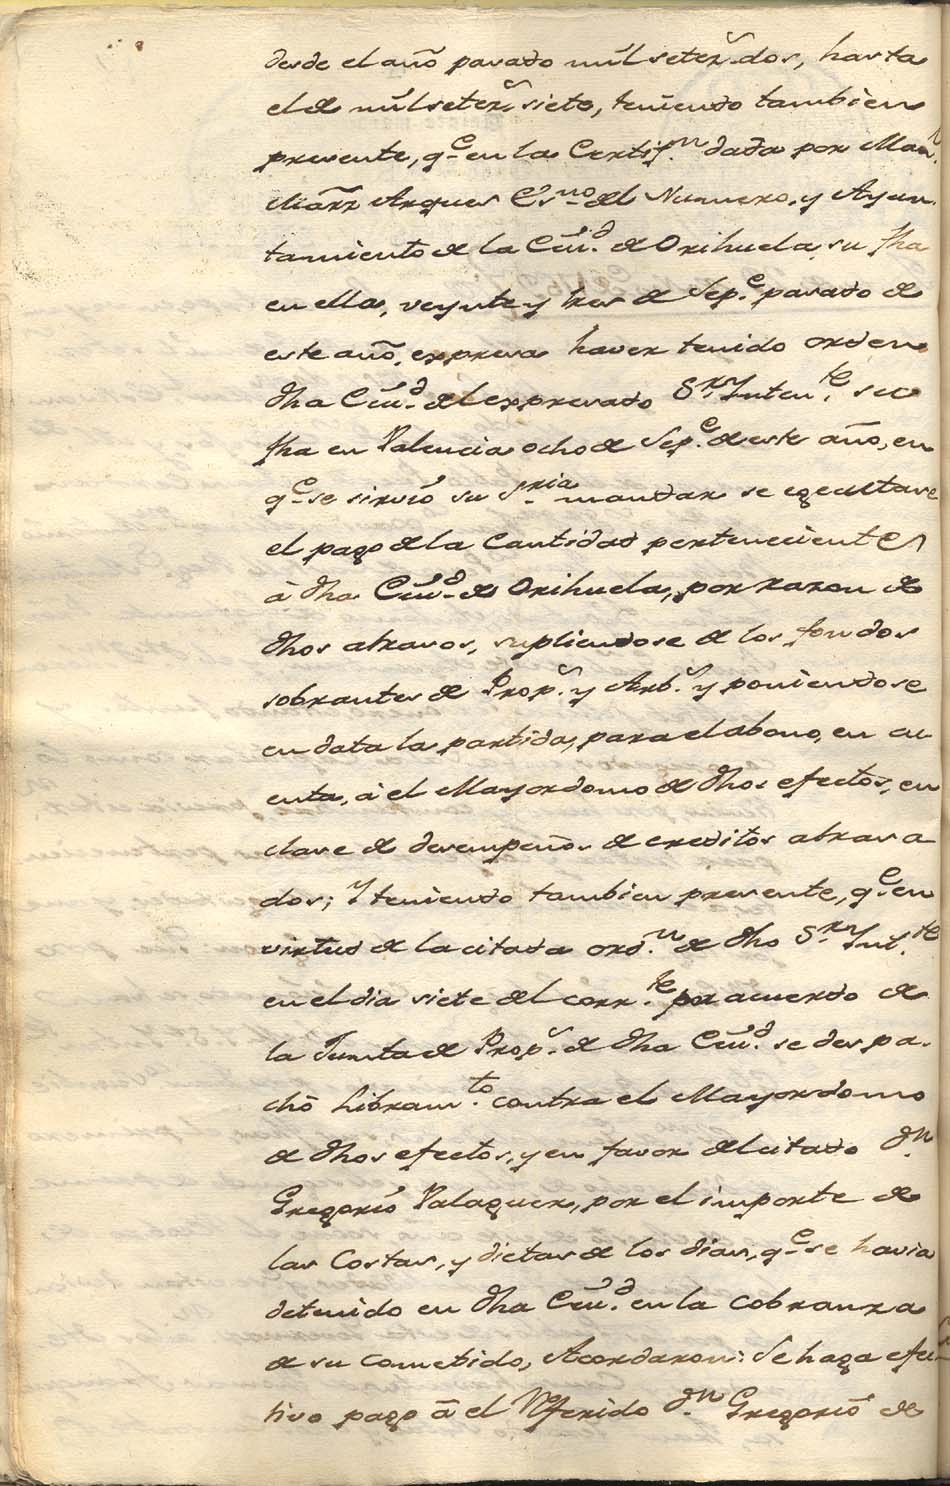 desde el año pasado mil setez.s dos, hasta
el de mil setez.s siete, teniendo tambien
presente, q.e en la Certif.n dada por
Arques Es.no del Numero, y Ayun
tamiento de la Ciu.d de Orihuela, su fha
en ella, veynte y tres de Sep.e pasado de
este año, expresa haver tenido orden
dha Ciu.d del expresado S.r Inten.te su
fha en Valencia ocho de Sep.e de este año, en
q.e se sirvió su S.ria mandar se egecutase
el pago de la Cantidad perteneciente
à dha Ciu.d de Orihuela, por razon de
dhos atrasos, supliendose de los fondos
sobrantes de Prop.s y Arb.s y poniendose
en data la partida, para el abono, en cu
enta, à el Mayordomo de dhos efectos, en
clase de desempeños de creditos atrasa
dos; Y teniendo tambien presente, q.e en
virtud de la citada ord.n de dho S.r Int.te
en el dia siete del corr.te por acuerdo de
la Junta de Prop.s de dha Ciu.d se despa-
chó Libram.to contra el Mayordomo
de dhos efectos, y en favor del citado D.n
Gregorio Palaquer, por el importe de
las Costas, y dietas de los dias, q.e se havia
detenido en dha Ciu.d en la cobranza
de su cometido, Acordaron: Se haga efec
tivo pago à el Referido D.n Gregorio de